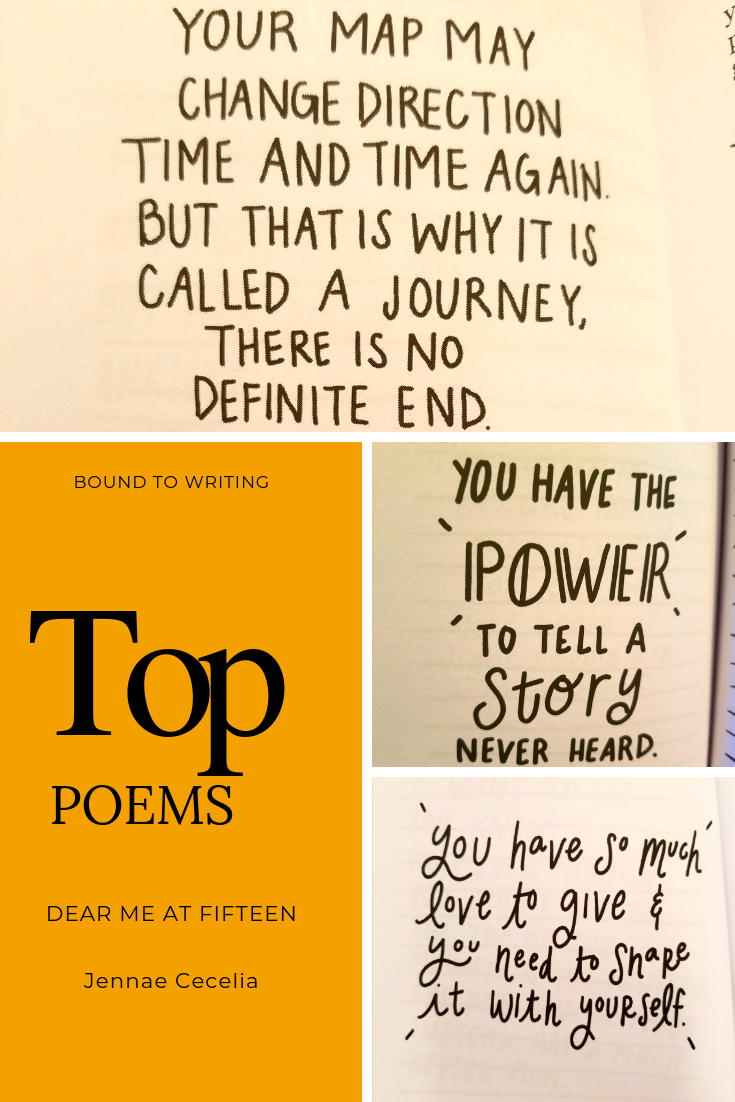 YOUR MAP MAY
CHANGE DIRECTION
TIME AND TIME AGAIN.
BUT THAT IS WHY IT IS
CALLED A JOURNEY,
THERE IS NO
DEFINITE END.
BOUND TO WRITING
Top
POEMS
DEAR ME AT FIFTEEN
Jennae Cecelia
YOU HAVE THE
POWER
TO TELL A
Story
NEVER HEARD.
you have so much
love to give &
you need to share
it with yourself.